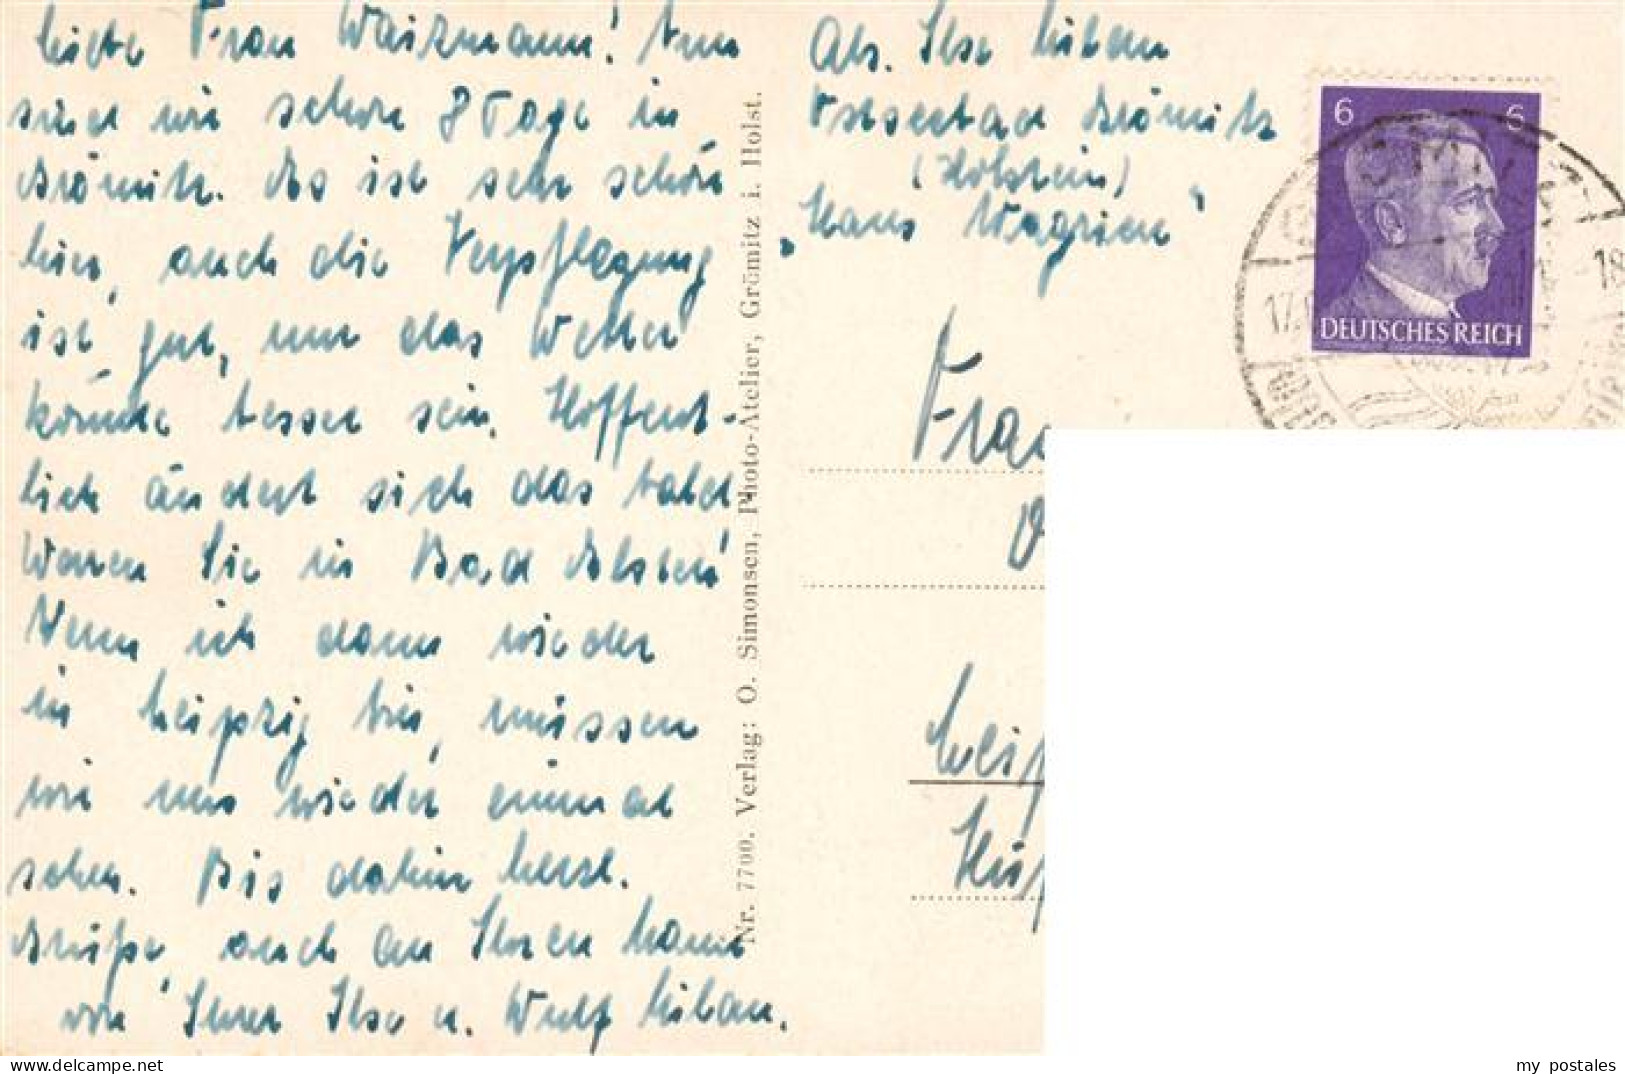 Liebe Frau Waizmann! Nun
sind wir schon 8 Tage in
Grömitz. Es ist sehr schön
hier, auch die Verpflegung
ist gut, nur das Wetter
könnte besser sein. Hoffent-
lich ändert sich das bald.
Waren Sie in Bad Elster?
Wenn ich dann wieder
in Leipzig bin, müssen
wir uns wieder einmal
sehen. Bis dahin herzl.
Grüße, auch an Ihren Mann
von Ihrer Ilse u. Wulf Milan.
Nr. 7700. Verlag: O. Simonsen, Photo-Atelier, Grömitz i. Holst.
Abs. Ilse Milan
Ostseebad Grömitz
(Holstein)
„Haus Wagrien"
6 6
DEUTSCHES REICH
GRÖMITZ
17. 18
Frau
Leip
delcampe.net
my postales